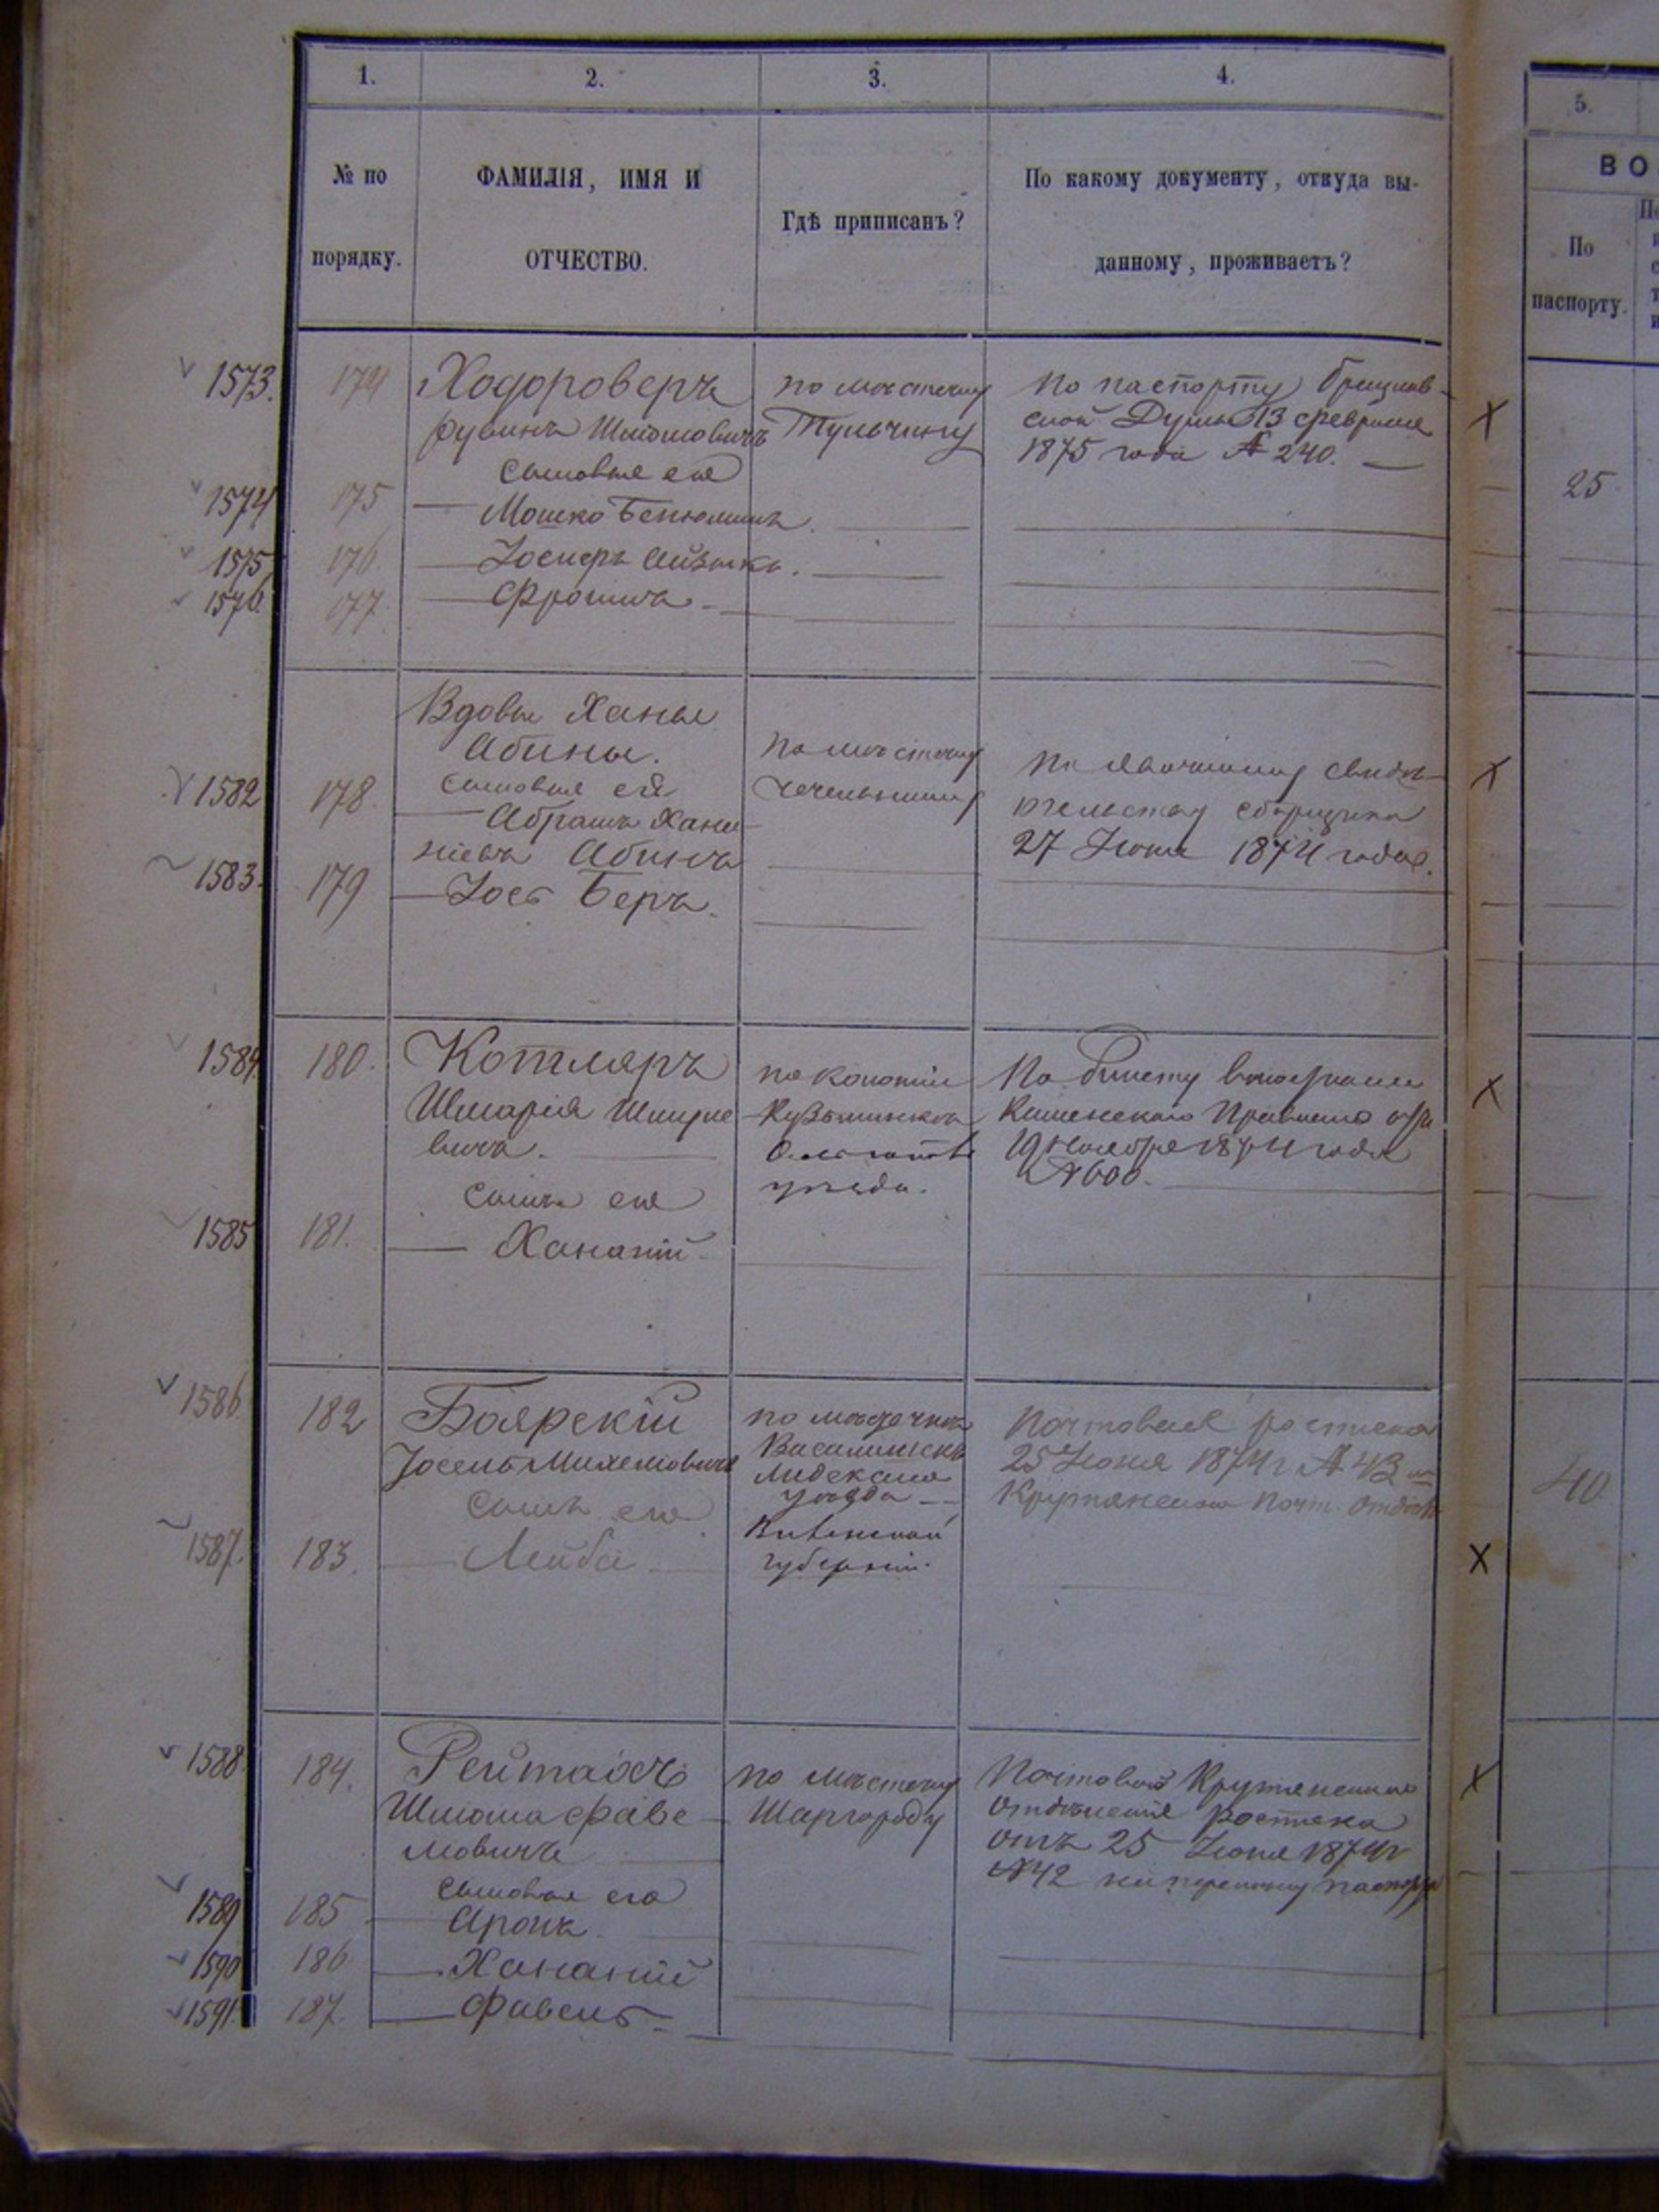 1. 2. 3. 4. 5.
№ по порядку.
ФАМИЛІЯ, ИМЯ И ОТЧЕСТВО.
Гдѣ приписанъ?
По какому документу, откуда выданному, проживаетъ?
ВО
По паспорту.
1573. 174 Ходороверъ по мѣстечку по паспорту
Рувинъ Шліомовичъ Тульчину Думы 13 февраля
1875 года № 240.
сыновья его
25
1574 175 — Мошко Беньюминъ.
1575 176 — Іосиеръ Айзикъ.
1576 177. — Фроимъ
Вдовы Ханы
Абины. по мѣстечку по явочному свидѣ-
сыновья ея Чечельнику тельству сборщика
1582 178. — Абрамъ Хани- 27 Іюня 1874 года.
ніевъ Абинъ
1583. 179 — Іось Беръ.
1584. 180. Котляръ по колоніи По билету
Шмарія 19 Ноября 1874 года
вичъ. уѣзда. № 600.
сынъ его
1585 181. — Хананій
1586 182 Боярскій по мѣстечку Почтовая росписка
Іосель Михелевичъ Василишкъ 25 Іюня 1874 г № 43
Лидскаго уѣзда Крутянскаго Почт. Отдѣл
сынъ его Виленской
1587. 183. — Лейба губерніи.
40
1588. 184. Рейтаохъ по мѣстечку Почтовой Крутянскаго
Шліома Файве- Шаргороду Отдѣленія росписка
ловичъ отъ 25 Іюня 1874 г
сыновья его № 42 на перемѣну паспорта
1589 185 — Аронъ
1590 186 — Хананій
1591. 187. — Файвель